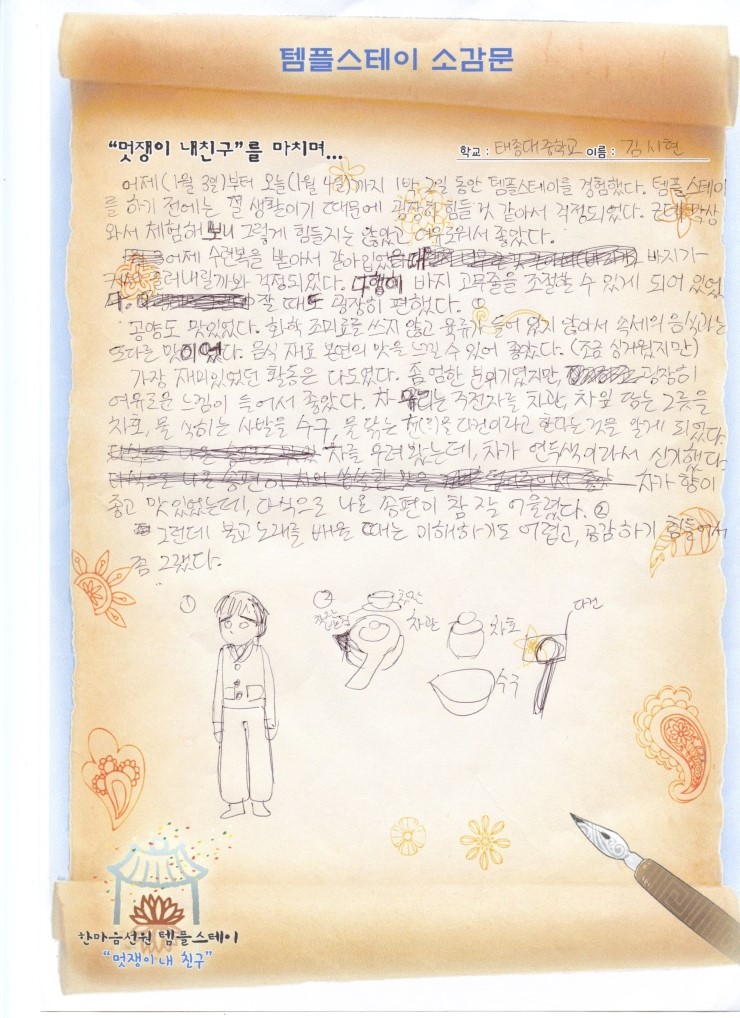 템플스테이 소감문
“멋쟁이 내친구”를 마치며...
학교 : 태종대중학교 이름 : 김시현
어제(1월 3일)부터 오늘(1월 4일)까지 1박 2일 동안 템플스테이를 경험했다. 템플스테이
를 하기 전에는 절 생활이기 때문에 굉장히 힘들 것 같아서 걱정되었다. 근데 막상
와서 체험해 보니 그렇게 힘들지는 않았고 여유로워서 좋았다.
어제 수련복을 받아서 갈아입었을 때 바지가
흘러내릴까봐 걱정되었다. 다행히 바지 고무줄을 조절할 수 있게 되어 있었
다. 잘 때도 굉장히 편했다. ①
공양도 맛있었다. 화학 조미료를 쓰지 않고 육류가 들어 있지 않아서 속세의 음식과는
또다른 맛이었다. 음식 재료 본연의 맛을 느낄 수 있어 좋았다. (조금 싱거웠지만)
가장 재미있었던 활동은 다도였다. 좀 엄한 분위기였지만, 굉장히
여유로운 느낌이 들어서 좋았다. 차 우리는 주전자를 차관, 차잎 담는 그릇을
차호, 물 식히는 사발을 수구, 물 닦는 천을 다건이라고 한다는 것을 알게 되었다.
차를 우려 봤는데, 차가 연두색이라서 신기했다.
차가 향이
좋고 맛있었는데, 다식으로 나온 송편이 참 잘 어울렸다. ②
그런데 불교 노래를 배울 때는 이해하기도 어렵고, 공감하기 힘들어서
좀 그랬다.
① ② 찻잔 차관 차호 다건
수구
한마음선원 템플스테이
“멋쟁이 내 친구”